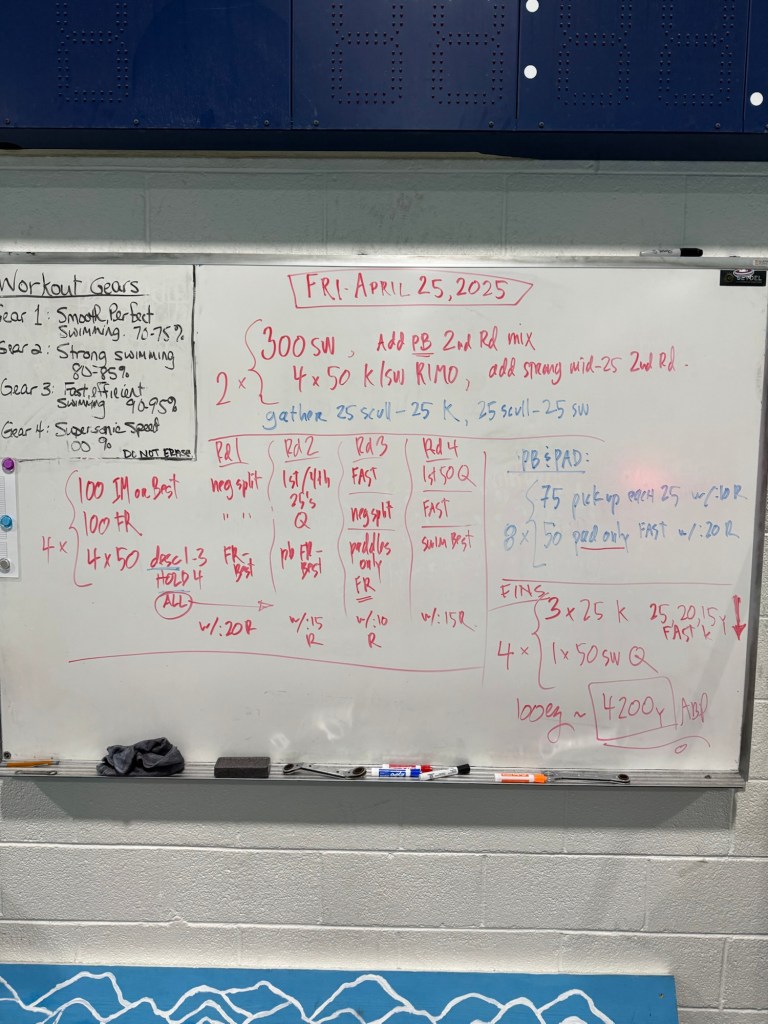 Workout Gears
Gear 1: Smooth, Perfect
Swimming. 70-75%
Gear 2: Strong swimming
80-85%
Gear 3: Fast, efficient
swimming 90-95%
Gear 4: Supersonic Speed
100 %
DO NOT ERASE
FRI. APRIL 25, 2025
2 x
300 sw, Add PB 2nd Rd mix
4 x 50 K/sw RIMO, add strong mid-25 2nd Rd.
gather 25 scull - 25 K, 25 scull - 25 sw
Rd 1 Rd 2 Rd 3 Rd 4
4 x
100 IM or Best neg split 1st/4th 25's Q FAST 1st 50 Q
100 FR " " neg split FAST
4 x 50 desc 1-3 FR-Best pb FR-Best paddles only swim Best
HOLD 4 FR
ALL
w/:20R w/:15 R w/:10 R w/:15R
PB & PAD:
8 x
75 pick up each 25 w/:10 R
50 pad only FAST w/:20R
FINS
4 x
3 x 25 K 25, 20, 15y
FAST K
1 x 50 sw Q
100 eg ~ 4200y